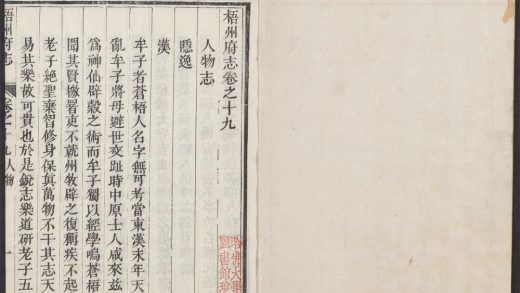 梧州府志卷之十九
人物志
隱逸
漢
牟子者蒼梧人名字無可考當東漢末年天
亂牟子將母避世交趾時中原士人咸來兹
爲神仙辟穀之術而牟子獨以經學鳴蒼梧
聞其賢檄署吏不就州牧辟之復稱疾不起
老子絕聖棄智修身保眞萬物不干其志天
易其樂故可貴也於是銳志樂道研老子五
梧州府志
卷之十九人物
一
哈佛大學
圖書館珍